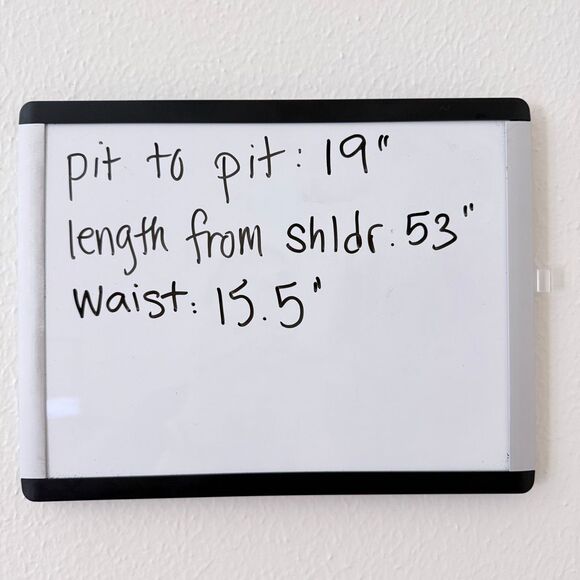 pit to pit: 19"
length from shldr: 53"
waist: 15.5"